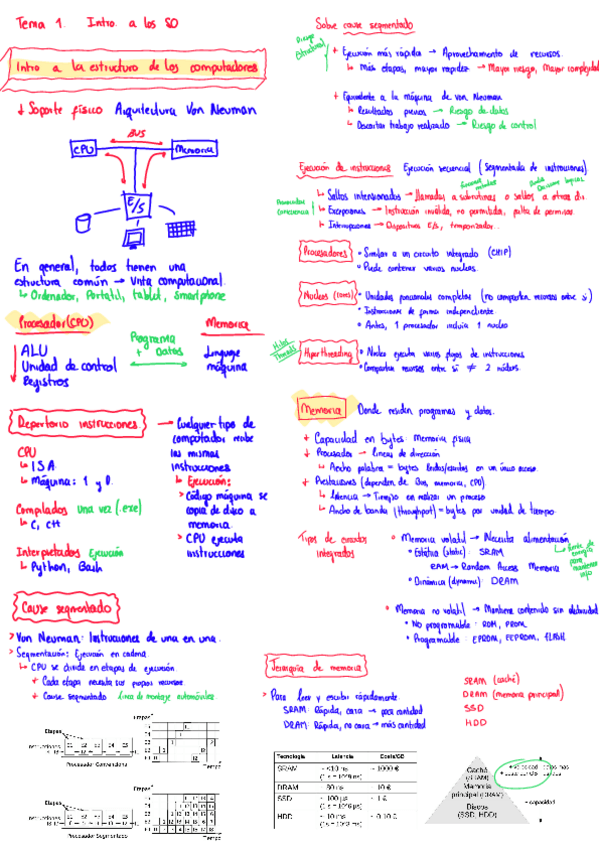 Tema 1. Intro. a los SO
Intro a la estructura de los computadores
↓ Soporte físico Arquitectura Von Neuman
BUS
CPU
Memoria
E/S
En general, todos tienen una
estructura común → Unta computacional.
↳ Ordenador, Portatil, tablet, Smartphone
Procesador (CPU)
Memoria
Programa
+
Datos
ALU
Unidad de control
Registros
Lenguaje
máquina
Repertorio instrucciones
→ Cualquier tipo de
computador recibe
las mismas
instrucciones
↳ Ejecución:
> Código máquina se
copia de disco a
memoria
> CPU ejecuta
instrucciones
CPU
↳ ISA
↳ Máquina: 1 y 0.
Compilados una vez (.exe)
↳ C, C++
Interpretados Ejecución
↳ Python, Bash
Cause segmentado
> Von Neuman: Instrucciones de una en una.
> Segmentación: Ejecución en cadena.
↳ CPU se divide en etapas de ejecución.
+ Cada etapa necesita sus propios recursos.
+ Cause segmentado línea de montaje automóviles
Etapas
Etapas
Instrucciones
Tiempo
Procesador Convencional
Etapas
Etapas
Instrucciones
Tiempo
Procesador Segmentado
Sobre cause segmentado
Riesgo
Estructural
+ Ejecución más rápida → Aprovechamiento de recursos.
↳ Más etapas, mayor rapidez → Mayor riesgo, Mayor complejidad
+ Equivalente a la máquina de Von Neuman
↳ Resultados previos → Riesgo de datos
↳ Descartar trabajo realizado → Riesgo de control
Ejecución de instrucciones Ejecución secuencial (Segmentada de instrucciones)
↳ Saltos intensionados → llamadas a subrutinas o saltos a otras dir.
↳ Excepciones → Instrucción inválida, no permitida, falta de permisos
↳ Interrupciones → Dispositivos E/S, temporizador..
Procesadores
• Similar a un circuito integrado (CHIP)
• Puede contener varios nucleos.
Nucleos (cores)
• Unidades funcionales completas (no comparten recursos entre si)
• Instrucciones de forma independiente
• Antes, 1 procesador incluía 1 nucleo
Hilos
Threads
Hiperthreading
• Núcleo ejecuta varios flujos de instrucciones.
• Comparten recursos entre si ≠ 2 núcleos.
Memoria Donde residen programas y datos.
+ Capacidad en bytes Memoria física
+ Procesador → lineas de dirección
↳ Ancho palabra = bytes leidos/escritos en un único acceso.
+ Prestaciones (dependen de Bus, memoria, CPU)
↳ latencia → Tiempo en realizar un proceso
↳ Ancho de banda (throughput) = bytes por unidad de tiempo
Tipos de circuitos
integrados
• Memoria volatil → Necesita alimentación
↳ fuente de
energía
para
mantener
info
• Estática (static) : SRAM
RAM → Random Access Memoria
• Dinámica (dynamic) : DRAM
• Memoria no volatil → Mantiene contenido sin electricidad
• No programable : ROM, PROM
• Programable : EPROM, EEPROM, FLASH
Jerarquía de memoria
> Para leer y escribir rápidamente.
SRAM: Rápida, cara → poca cantidad
DRAM: Rápida, no cara → más cantidad
SRAM (caché)
DRAM (memoria principal)
SSD
HDD
Tecnología Latencia Coste/GB
SRAM ~ <10 ns ~ 1000 €
DRAM 80 ns 10 €
SSD ~ 100 µs ~ 1 €
HDD ~ 10 ms ~ 0.10 €
Caché
(SRAM)
Memoria
principal (DRAM)
Discos
(SSD, HDD)
+ capacidad